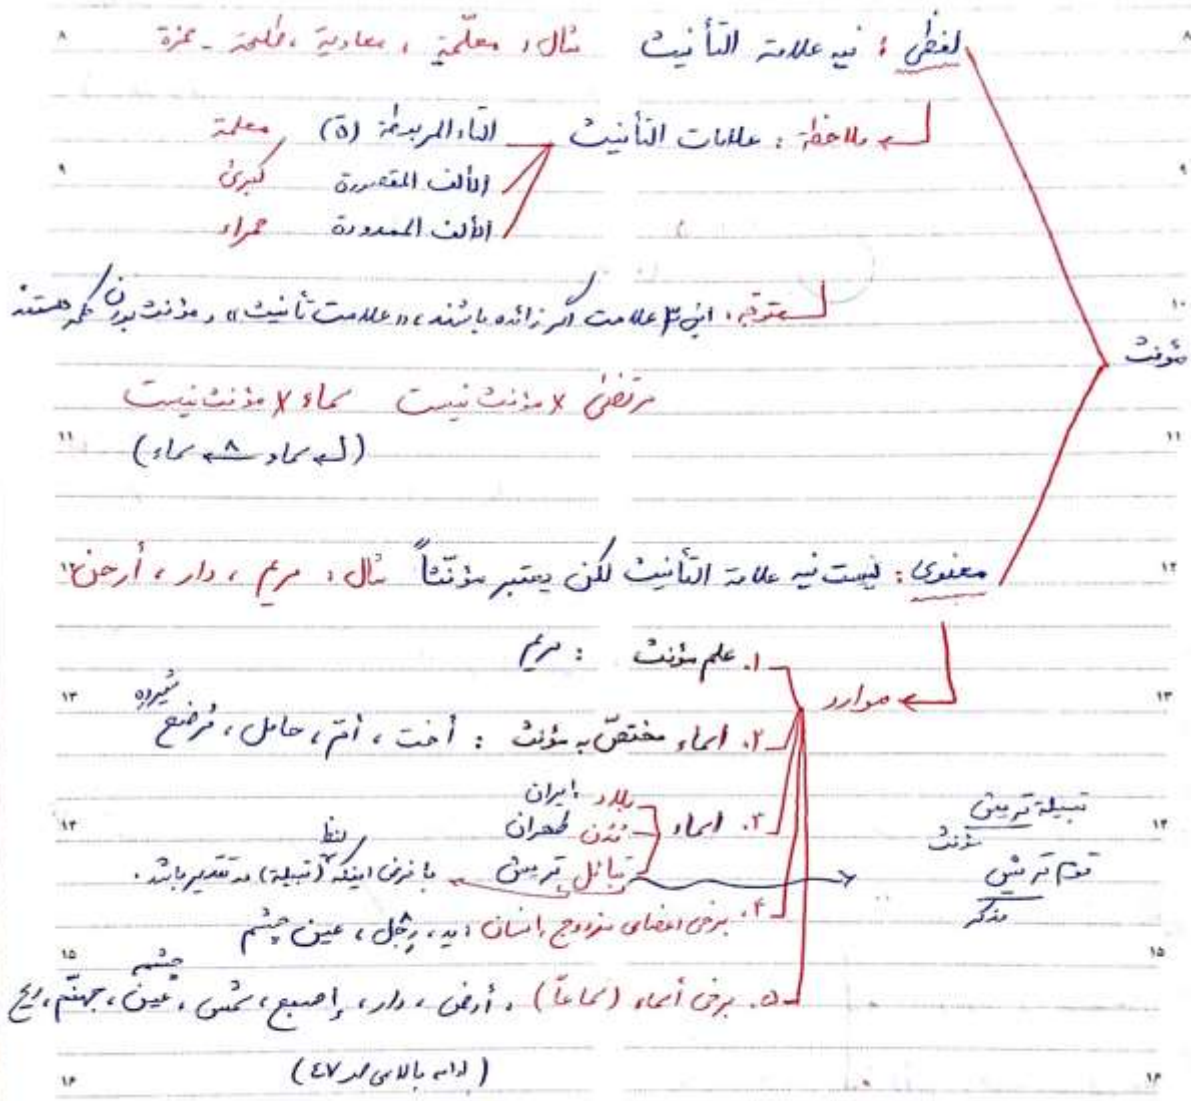 لفظی : فیه علامة التأنیث مثال : معلّمة ، معاویة ، طلحة - حمزة
ملاحظة : علامات التأنیث التاء المربوطة (ة) معلمة
الألف المقصورة کبریٰ
الألف الممدودة حمراء
متوجّه : این ۳ علامت اگر زائده باشند، «علامت تأنیث» و مؤنث بودن کلمه هستند
مؤنث
مرتضیٰ × مؤنث نیست سماء × مؤنث نیست
(سماو ۸ سماء)
معنوی : لیست فیه علامة التأنیث لکن یعتبر مؤنّثاً مثال : مریم ، دار ، أرض
موارد
۱. علم مؤنث : مریم
شیرده
۲. اسماء مختصّ به مؤنث : أخت ، أمّ ، حامل ، مُرضع
۳. اسماء
بلاد : ایران
مُدُن طهران
قبائل قریش با فرض اینکه لفظ (قبیلة) در تقدیر باشد.
قبیلة قریش
مؤنث
قوم قریش
مذکر
۴. برخی اعضای مزدوج انسان : ید ، رِجل ، عین چشم
چشمه
۵. برخی أسماء (سماعاً) : أرض ، دار ، إصبع ، شمس ، عین ، جهنّم ، ریح
(ادامه بالای صـ ٤٧)
۸
۹
۱۰
۱۱
۱۲
۱۳
۱۴
۱۵
۱۶